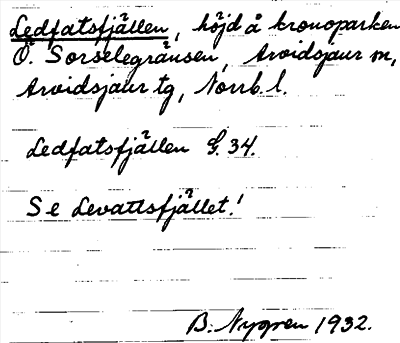 Ledfatsfjällen, höjd å kronoparken
Ö. Sorselegränsen, Arvidsjaur m,
Arvidsjaur tg, Norrb. l.
Ledfatsfjällen G. 34.
Se Levattsfjället!
B. Nygren 1932.